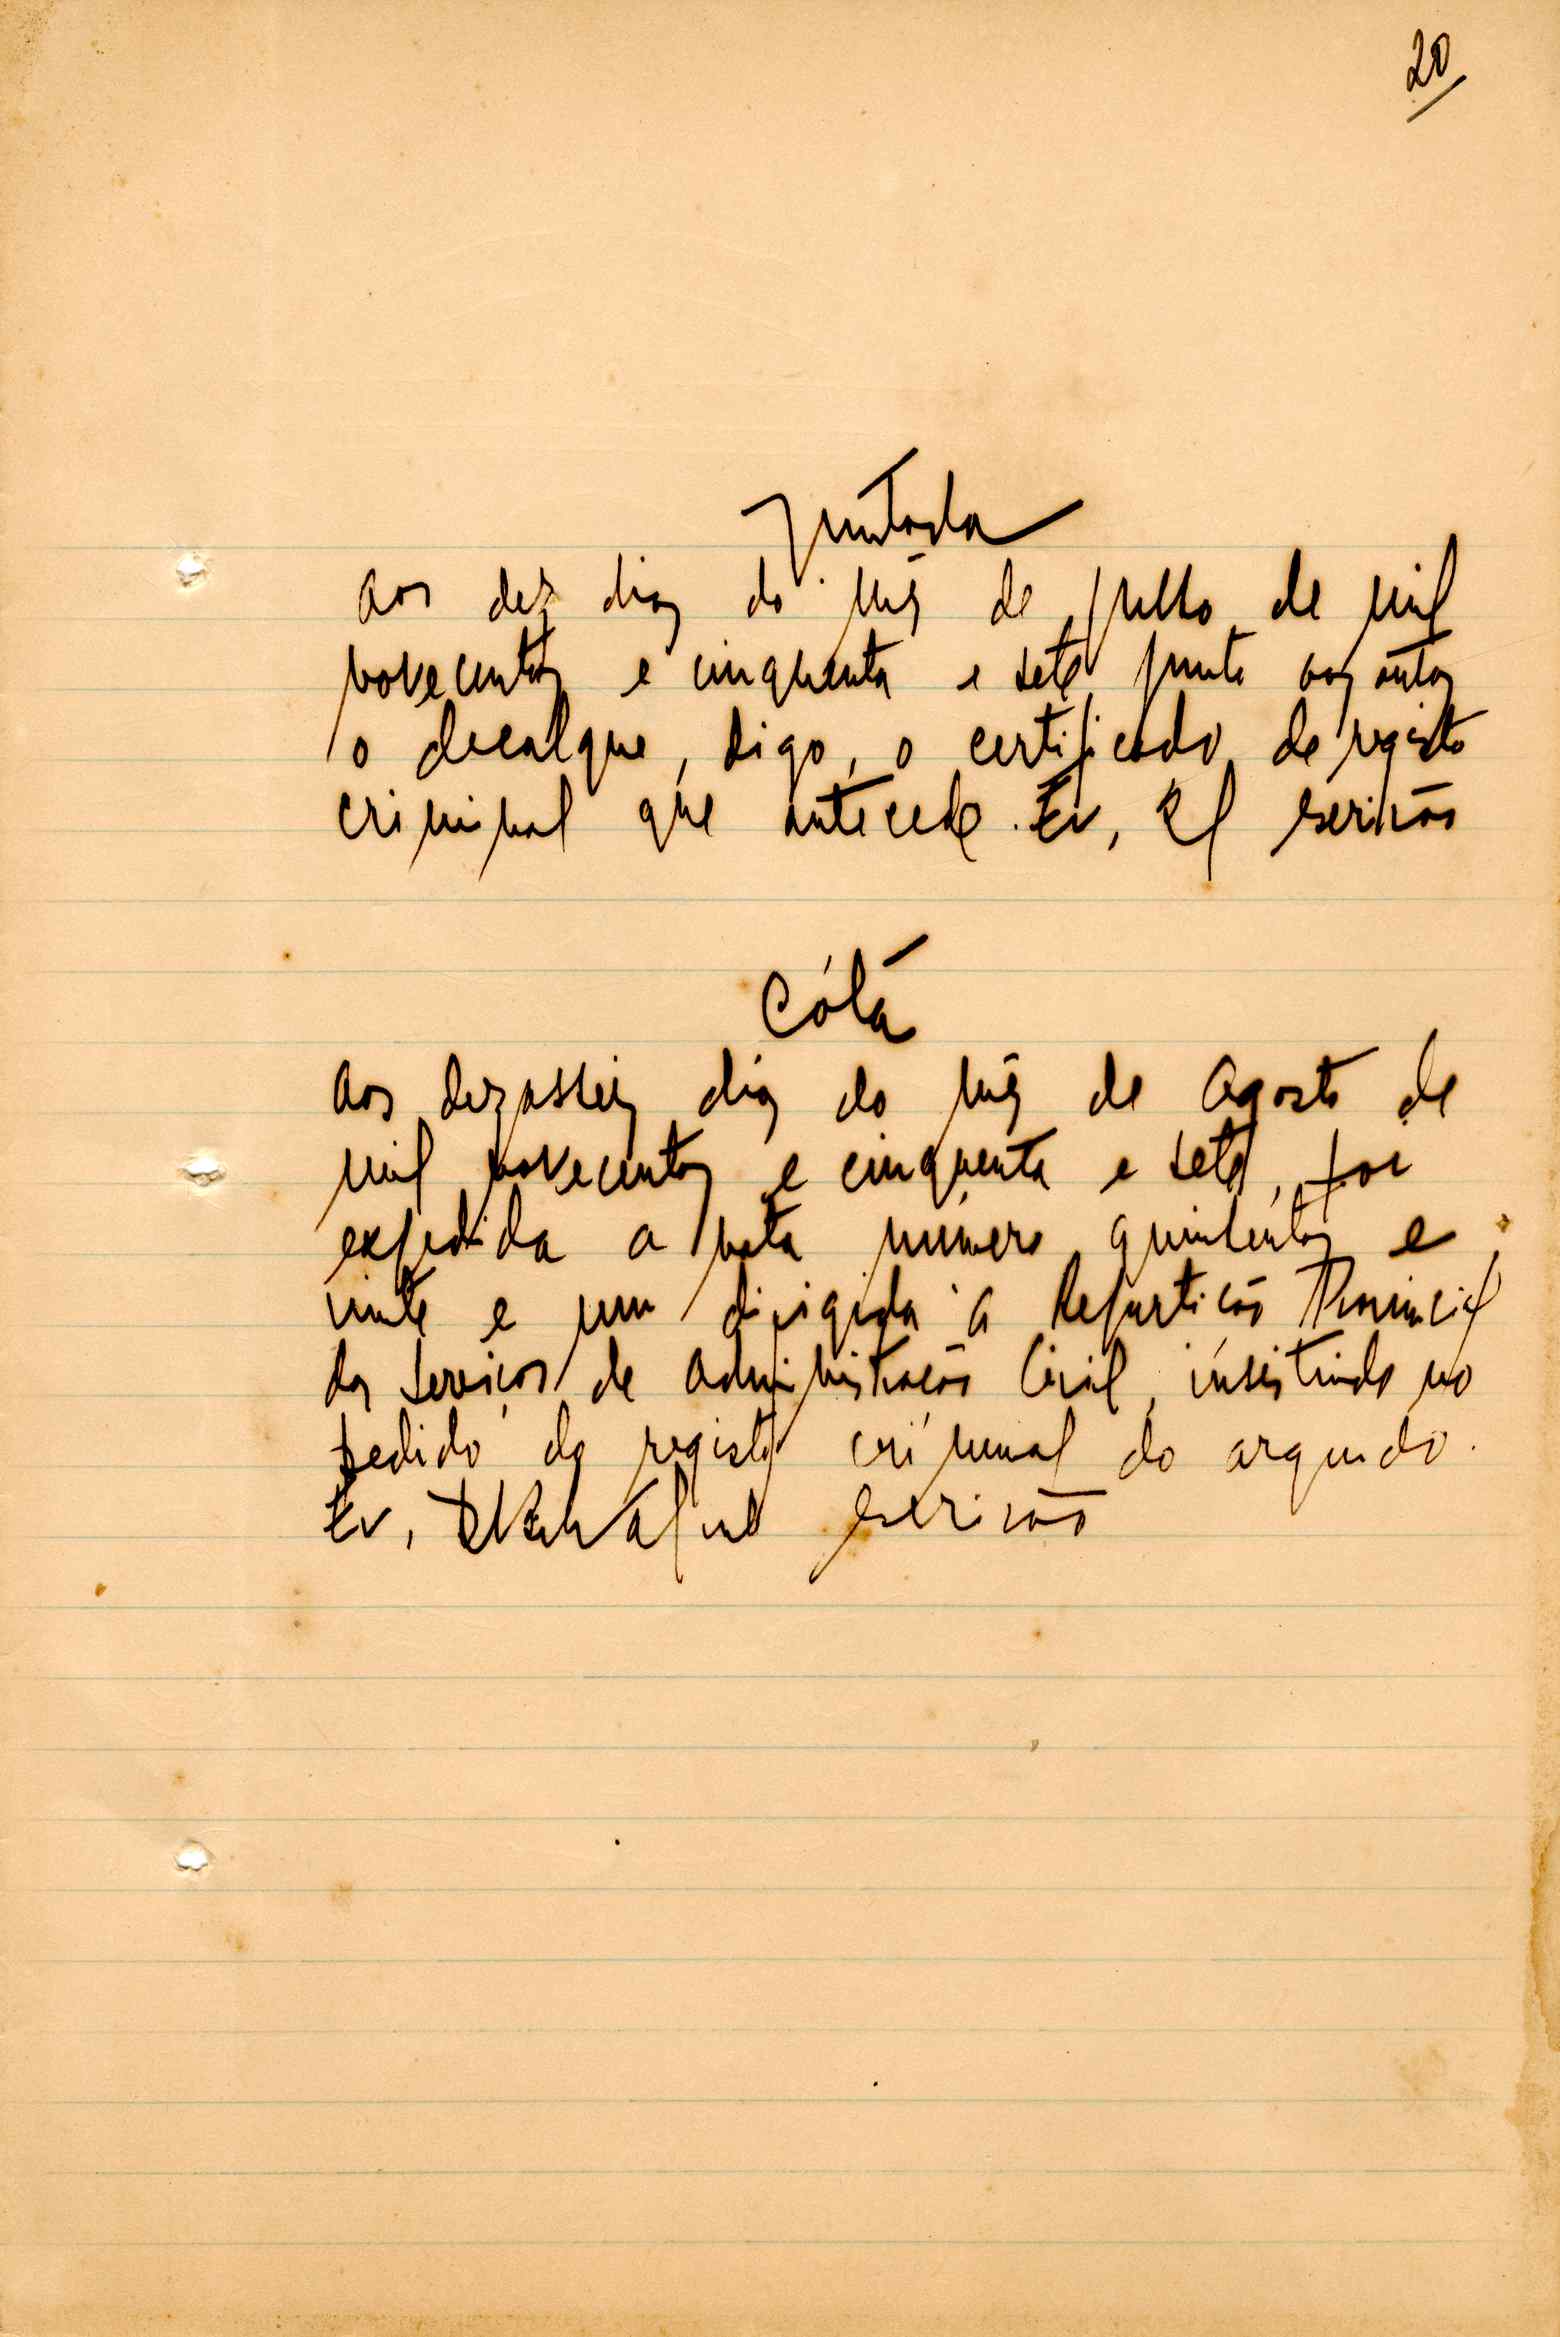 20
Juntada
Aos dez dias do mês de Julho de mil
novecentos e cinquenta e sete, junto aos autos
o decalque, digo, o certificado de registo
criminal que antecede. Eu, escrivão
Cóta
Aos dezasseis dias do mês de Agosto de
mil novecentos e cinquenta e sete, foi
expedida a nota número quinhentos e
vinte e um dirigida à Repartição Provincial
dos Serviços de Administração Civil, insistindo no
pedido do registo criminal do arguido.
Eu, escrivão